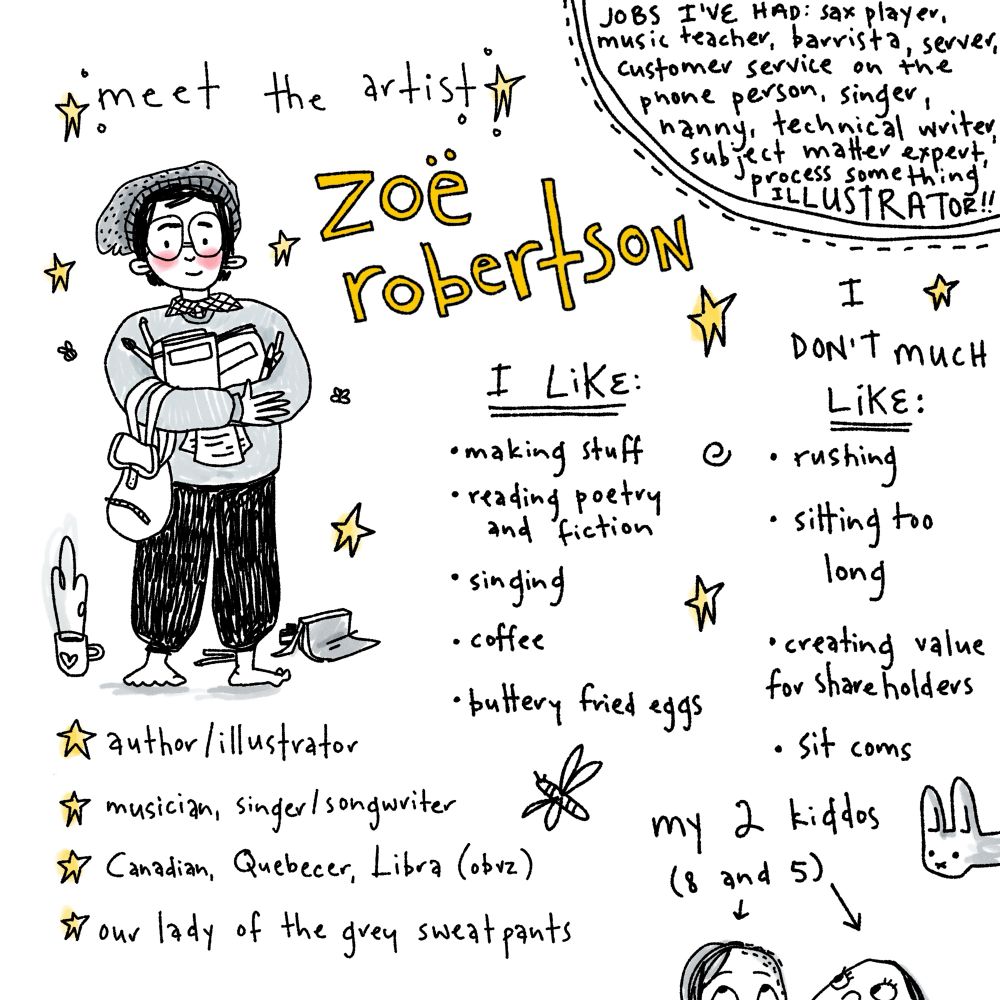 meet the artist
zoë
robertson
JOBS I'VE HAD: sax player,
music teacher, barrista, server,
customer service on the
phone person, singer,
nanny, technical writer,
subject matter expert,
process something
ILLUSTRATOR!!
I LiKE:
• making stuff
• reading poetry
and fiction
• singing
• coffee
• buttery fried eggs
I
DON'T MUCH
LiKE:
• rushing
• sitting too
long
• creating value
for shareholders
• sit coms
author/illustrator
musician, singer/songwriter
Canadian, Quebecer, Libra (obvz)
our lady of the grey sweatpants
my 2 kiddos
(8 and 5)